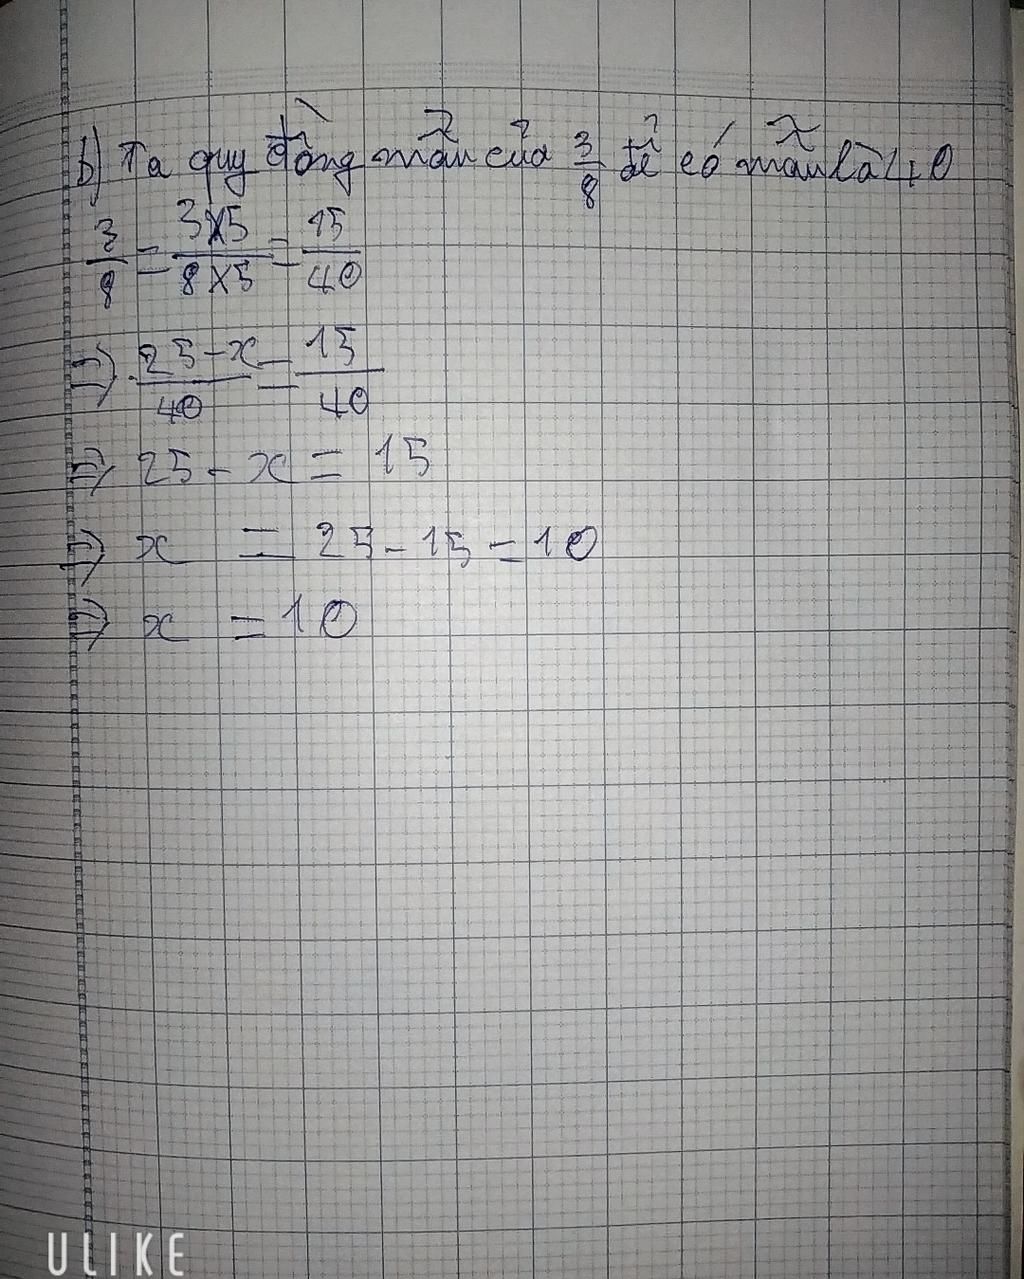 b) Ta quy đồng mẫu của 3/8 để có mẫu là 40
3/8 = 3x5/8x5 = 15/40
=> 25-x/40 = 15/40
=> 25 - x = 15
=> x = 25 - 15 = 10
=> x = 10
ULIKE